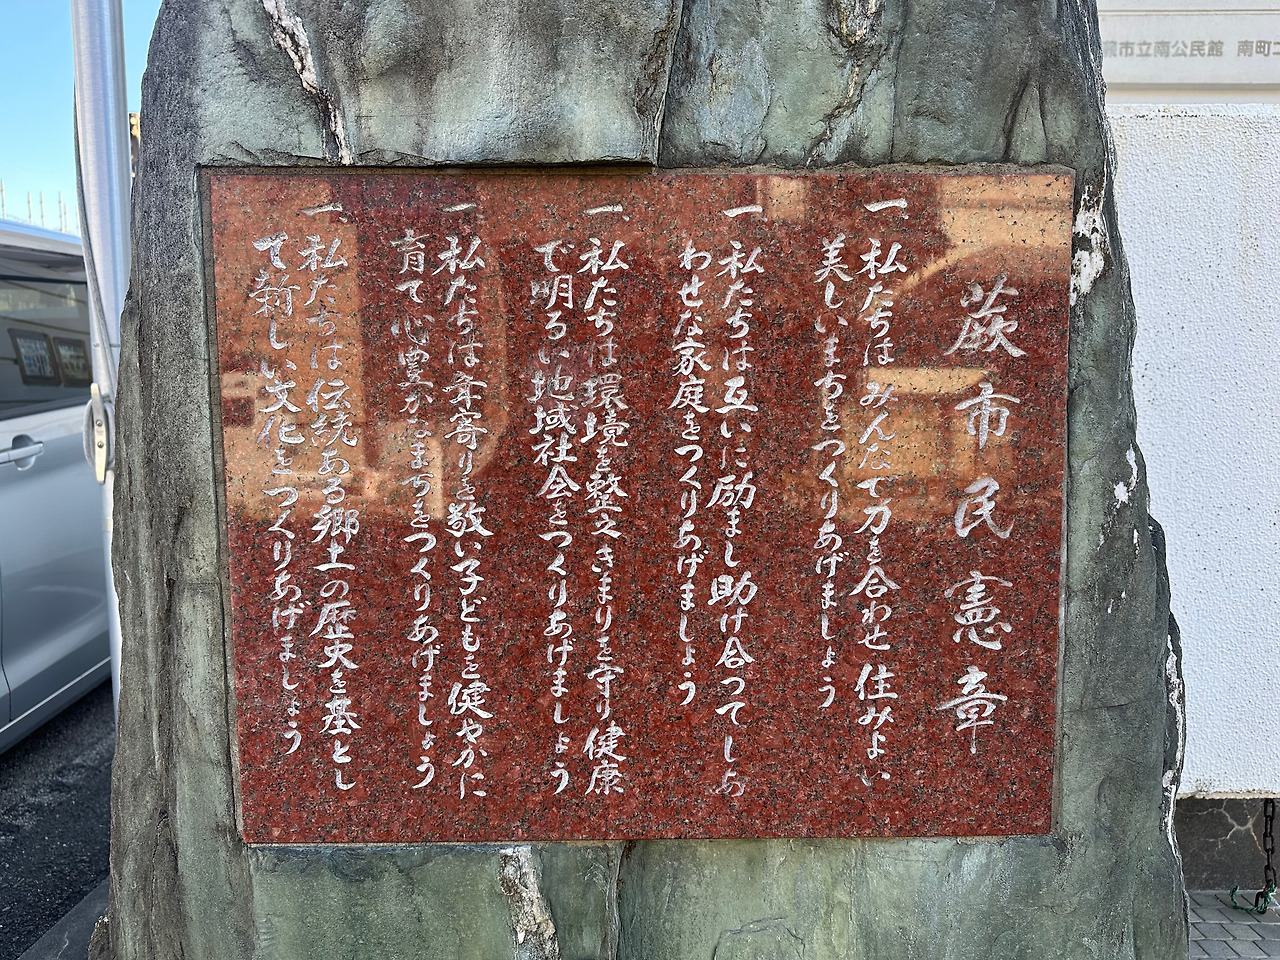 蕨市民憲章
一、私たちは みんなで力を合わせ 住みよい
美しいまちをつくりあげましょう
一、私たちは互いに励まし助け合って しあ
わせな家庭をつくりあげましょう
一、私たちは環境を整え きまりを守り健康
で明るい地域社会をつくりあげましょう
一、私たちは年寄りを敬い子どもを健やかに
育て心豊かなまちをつくりあげましょう
一、私たちは伝統ある郷土の歴史を基とし
て新しい文化をつくりあげましょう
市立南公民館 南町